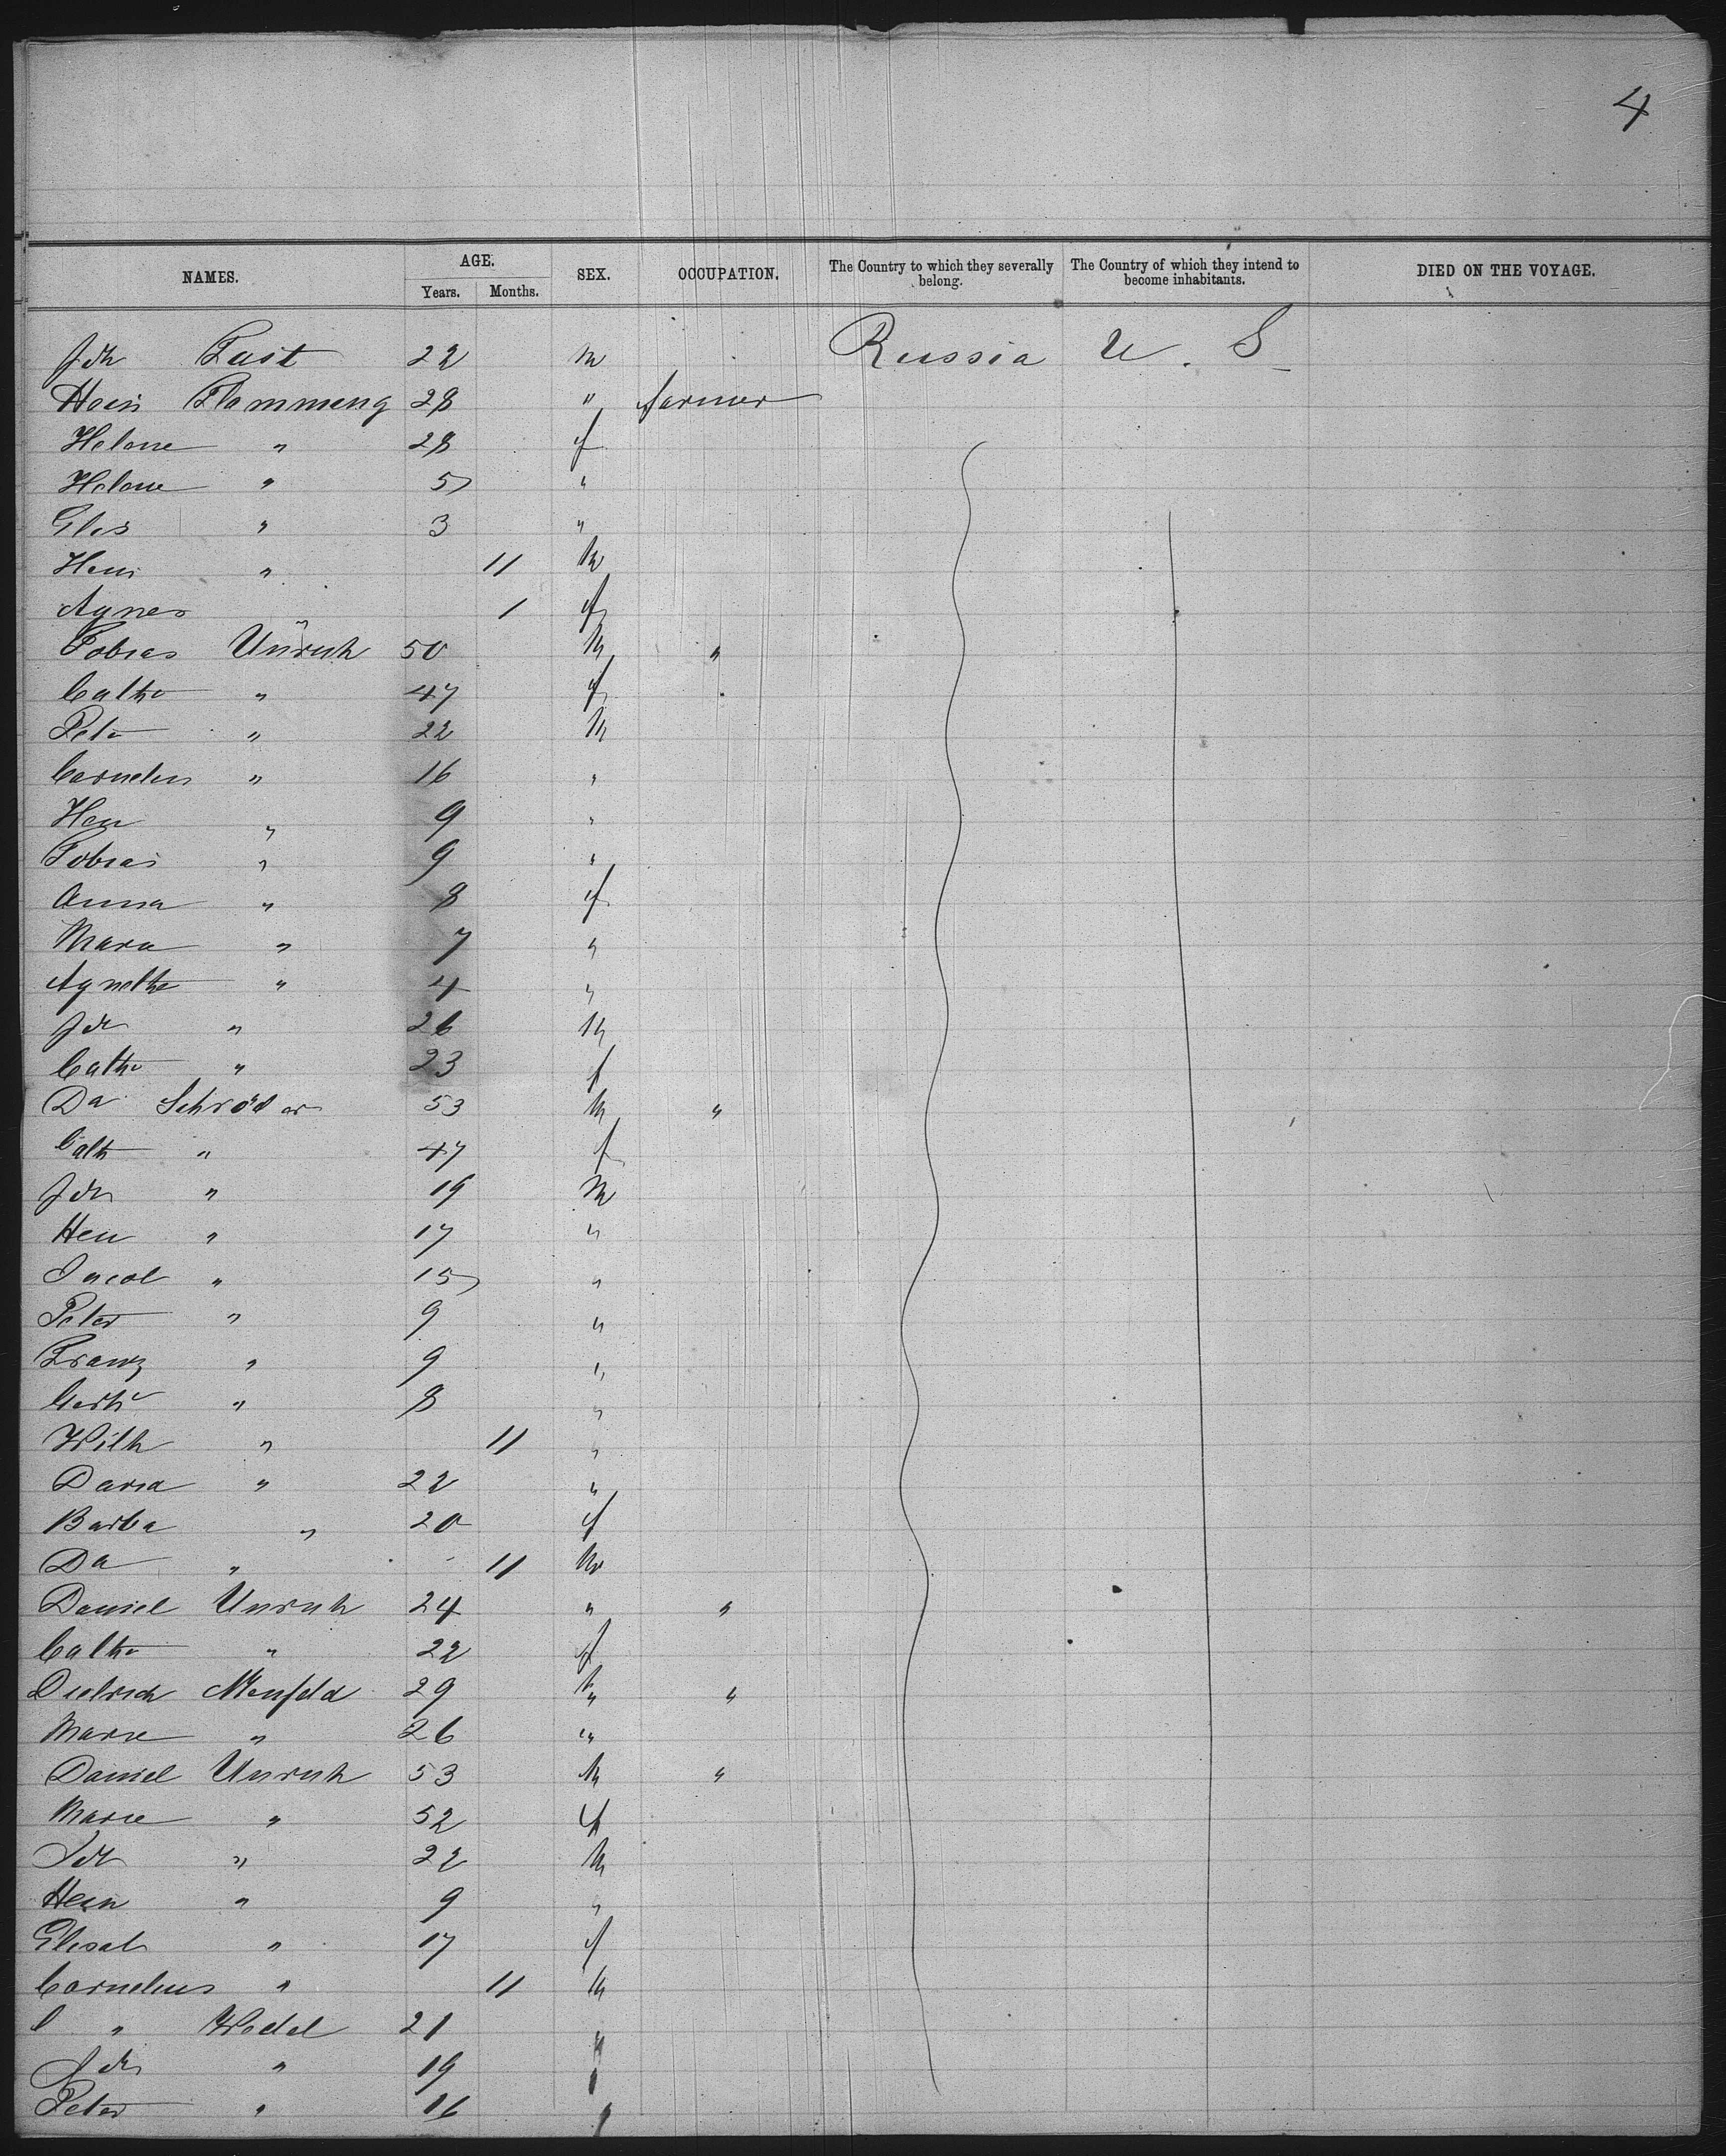 4
NAMES. AGE. SEX. OCCUPATION. The Country to which they severally belong. The Country of which they intend to become inhabitants. DIED ON THE VOYAGE.
Years. Months.
Joh Fast 22 m Russia U. S
Hein Flammeng 28 " farmer
Helene " 28 f
Helene " 5 "
Elis " 3 "
Hein " 11 m
Agnes " 1 f
Tobias Unruh 50 m "
Cathe " 47 f
Peter " 22 m
Cornelius " 16 "
Hen " 9 "
Tobias " 9 "
Anna " 8 f
Maria " 7 "
Agnethe " 4 "
Joh " 26 m
Cathe " 23 f
Da Schröder 53 m "
Cath " 47 f
Joh " 19 m
Hen " 17 "
Jacob " 15 "
Peter " 9 "
Franz " 9 "
Gerh " 8 "
Wilh " 11 "
David " 22 "
Barba " 20 f
Da " 11 m
Daniel Unruh 24 " "
Cathe " 22 f
Dietrich 29 m "
Marie " 26 "
Daniel Unruh 53 m "
Marie " 52 f
Joh " 22 m
Hein " 9 "
Elisab " 17 f
Cornelius " 11 m
" Wedel 21 "
Joh " 19 "
Peter " 16 "